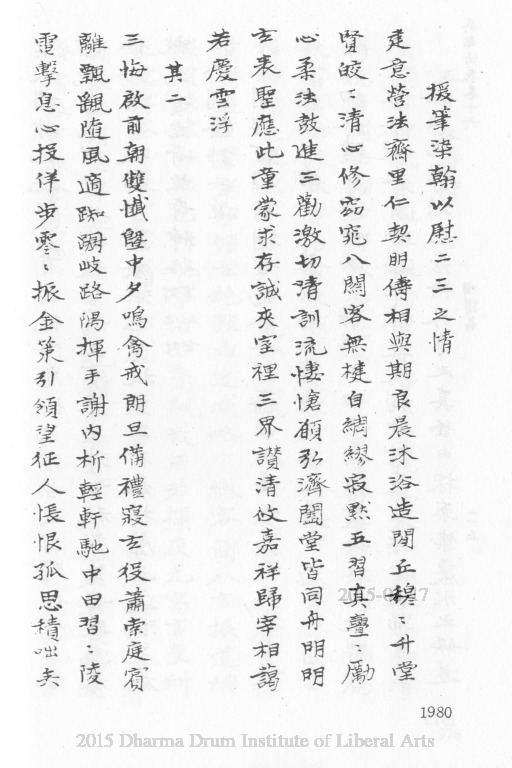 援筆染翰以慰二三之情
建意營法齋里仁契朋儔相與期良晨沐浴造閒丘穆:升堂
賢皎:清心修窈窕八關客無楗自綢繆寂默五習真亹:勵
心柔法鼓進三勸激切清訓流悽愴願弘濟闔堂皆同舟明明
玄表聖應此童蒙求存誠夾室裡三界讚清攸嘉祥歸宰相藹
若慶雲浮
其二
三悔啟前朝雙懺暨中夕鳴禽戒朗旦備禮寢玄役蕭索庭賓
離飄颻隨風適踟躕岐路隅揮手謝內析輕軒馳中田習:陵
電擊息心投佯步零:振金策引領望征人悵恨孤思積咄矣
1980
2015 Dharma Drum Institute of Liberal Arts